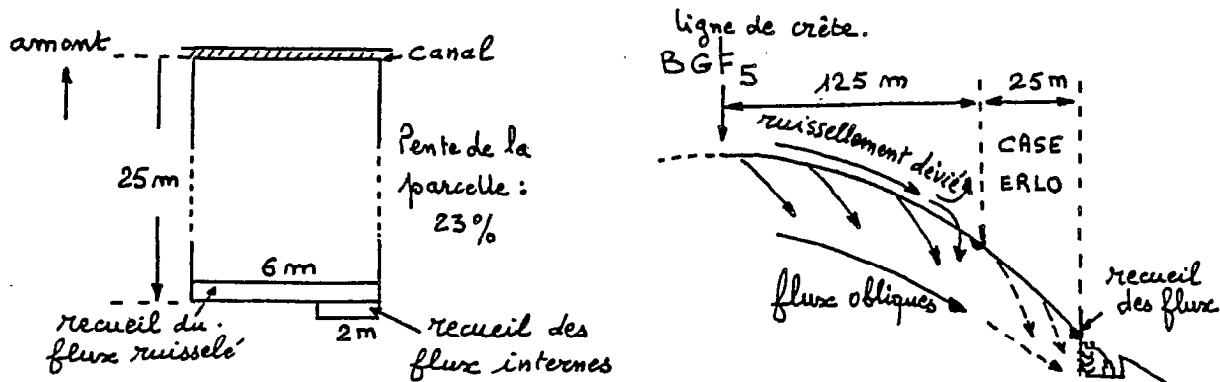 amont
canal
25m
Pente de la
parcelle :
23%
6m
recueil du
flux ruisselé
2m
recueil des
flux internes
ligne de crête.
BGF5
125 m
25m
ruissellement dévié
CASE
ERLO
flux obliques
recueil
des flux